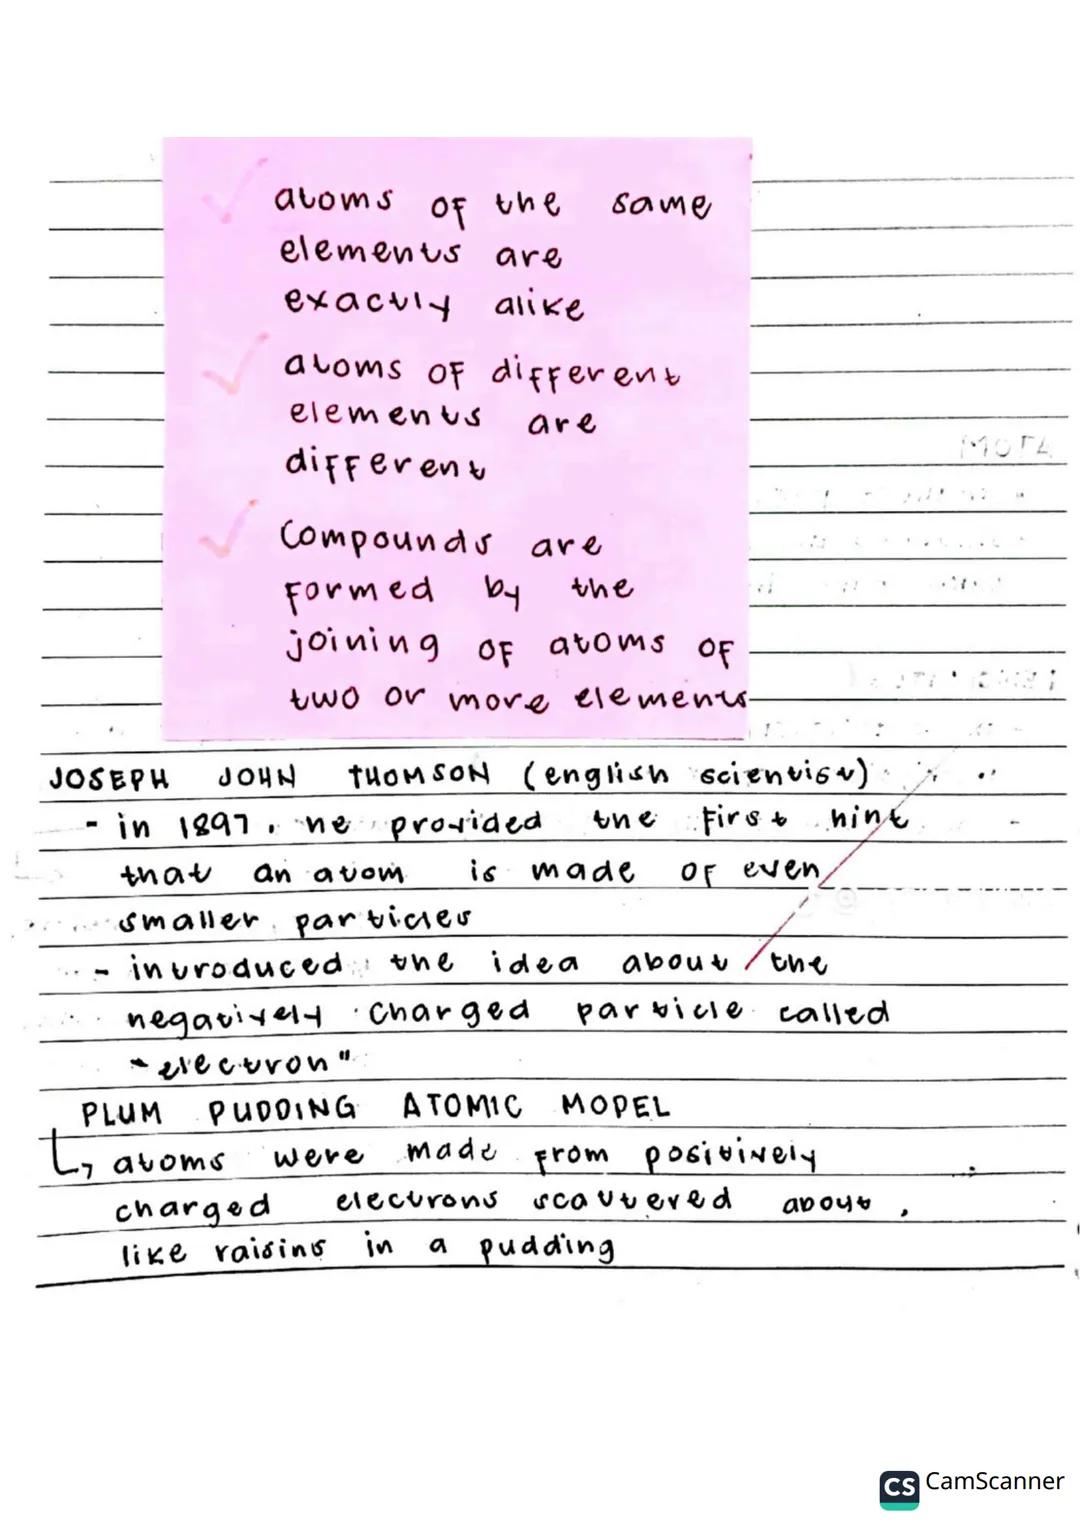 atoms of the same
elements are
exactly alike
atoms of different
elements are
different
Compounds are
formed by the
joining of atoms of
two or more elements
JOSEPH JOHN THOMSON (english scientist)
- in 1897, he provided the first hint
that an atom is made of even
smaller particles
- introduced the idea about the
negatively charged particle called
"electron"
PLUM PUDDING ATOMIC MODEL
↳ atoms were made from positively
charged electrons scattered about,
like raisins in a pudding
CS CamScanner